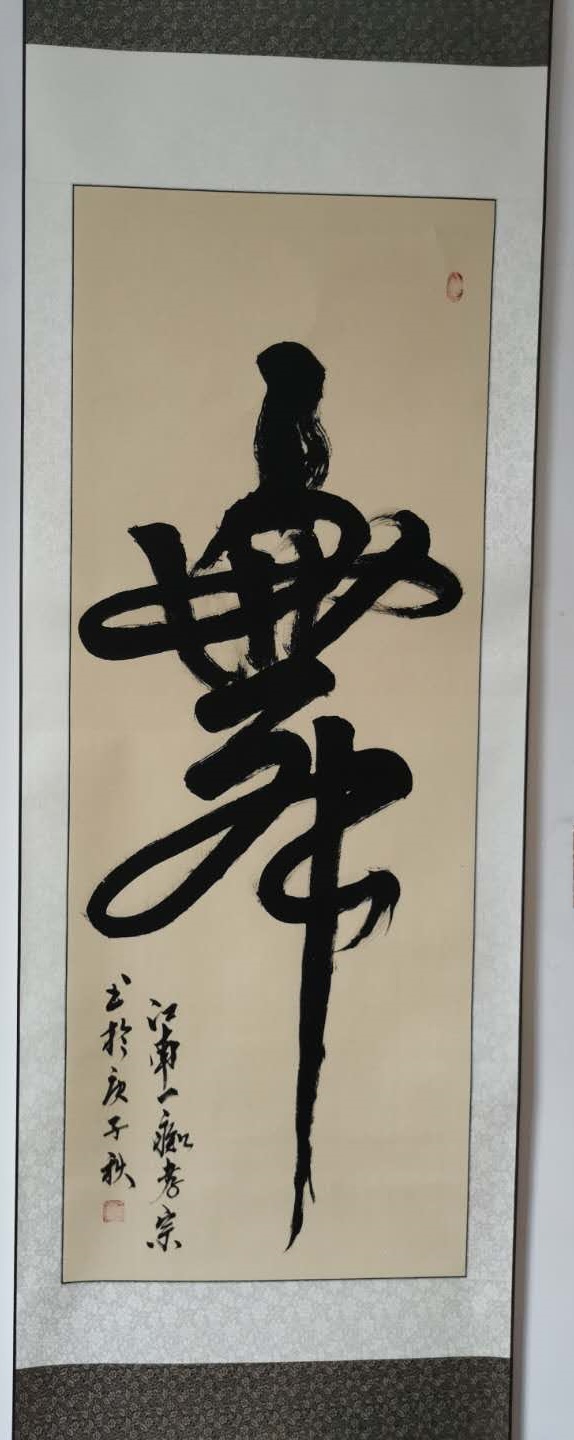 舞
江南一痴孝宗
书於庚子秋